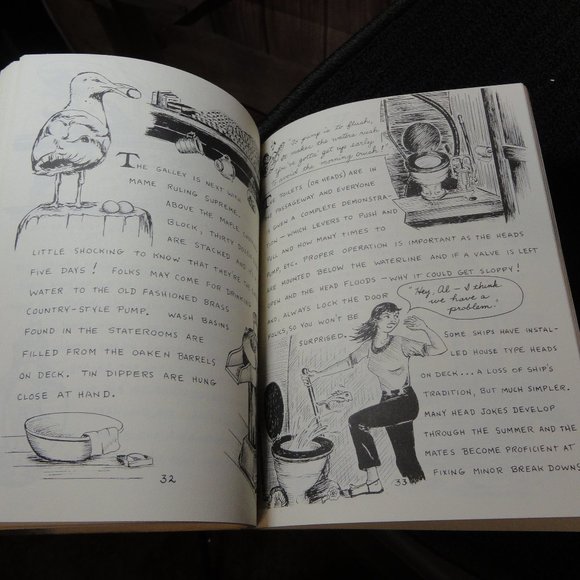 THE GALLEY IS NEXT WITH
MAME RULING SUPREME.
ABOVE THE MAPLE
BLOCK, THIRTY DOZEN
ARE STACKED AND IT'S
LITTLE SHOCKING TO KNOW THAT THEY'RE
FIVE DAYS! FOLKS MAY COME FOR DRINKING
WATER TO THE OLD FASHIONED BRASS
COUNTRY-STYLE PUMP. WASH BASINS
FOUND IN THE STATEROOMS ARE
FILLED FROM THE OAKEN BARRELS
ON DECK. TIN DIPPERS ARE HUNG
CLOSE AT HAND.
32
To pump is to flush,
It makes the waters rush
You've gotta get up early
to avoid the morning crush!
TOILETS (OR HEADS) ARE IN
PASSAGEWAY AND EVERYONE
GIVEN A COMPLETE DEMONSTRA-
TION - WHICH LEVERS TO PUSH AND
PULL AND HOW MANY TIMES TO
PUMP, ETC. PROPER OPERATION IS IMPORTANT AS THE HEADS
ARE MOUNTED BELOW THE WATERLINE AND IF A VALVE IS LEFT
OPEN AND THE HEAD FLOODS - WHY IT COULD GET SLOPPY!
AND, ALWAYS LOCK THE DOOR
FOLKS, SO YOU WON'T BE
SURPRISED.
"Hey, Al - I think
we have a
problem!"
SOME SHIPS HAVE INSTAL-
LED HOUSE TYPE HEADS
ON DECK... A LOSS OF SHIP'S
TRADITION, BUT MUCH SIMPLER.
MANY HEAD JOKES DEVELOP
THROUGH THE SUMMER AND THE
MATES BECOME PROFICIENT AT
FIXING MINOR BREAK DOWNS
33